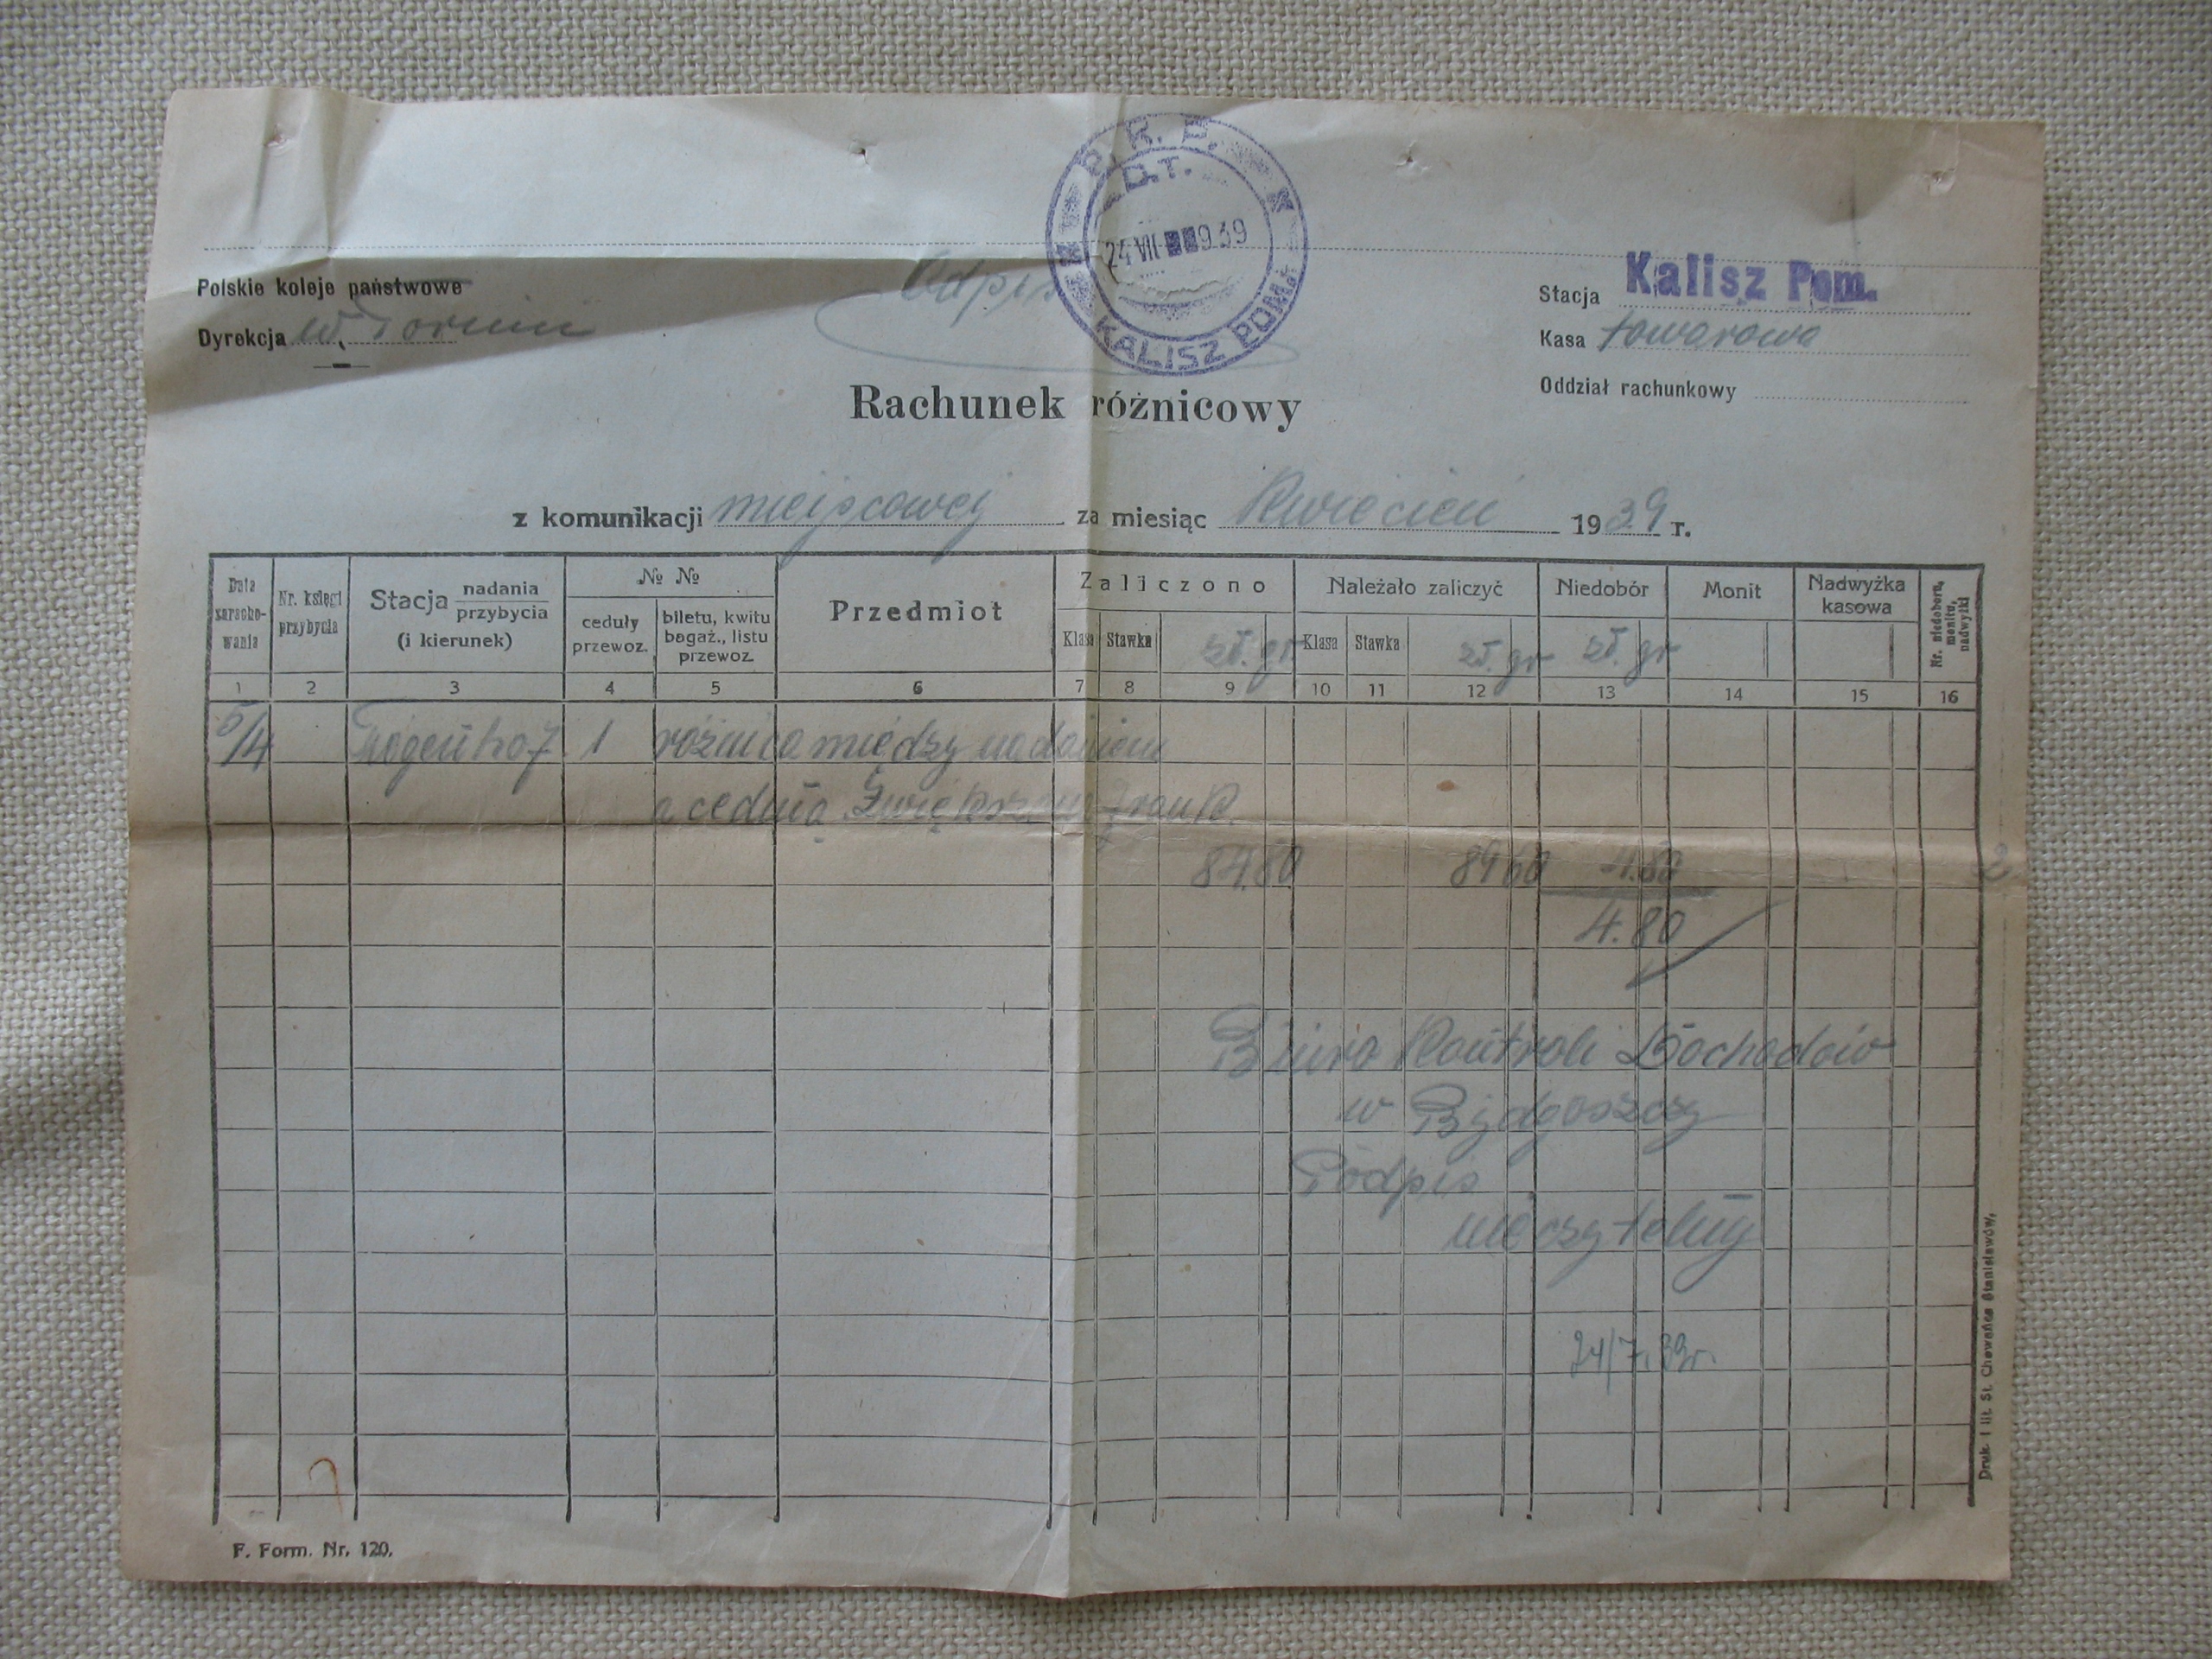 P. K. P.
D.T.
24 VII 939
KALISZ POM.
Odpis
Polskie koleje państwowe
Dyrekcja w Toruniu
Stacja Kalisz Pom.
Kasa towarowa
Oddział rachunkowy
Rachunek różnicowy
z komunikacji miejscowej za miesiąc Kwiecień 1939 r.
Data zaracho-wania
Nr. księgi przybycia
Stacja nadania przybycia (i kierunek)
№ №
ceduły przewoz.
biletu, kwitu bagaż., listu przewoz.
Przedmiot
Zaliczono
Klasa Stawka zł. gr
Należało zaliczyć
Klasa Stawka zł. gr
Niedobór
zł. gr
Monit
Nadwyżka kasowa
Nr. niedoboru, monitu, nadwyżki
1 2 3 4 5 6 7 8 9 10 11 12 13 14 15 16
5/4 1 różnica między nadaniem
a cedułą. Zwiększono frank.
84.80 89 60 4.80 2
4.80
Biuro Kontroli Dochodów
w Bydgoszczy
Podpis
nieczytelny
24/7.39r.
F. Form. Nr. 120.
Druk. i lit. St. Chowańca Stanisławów.